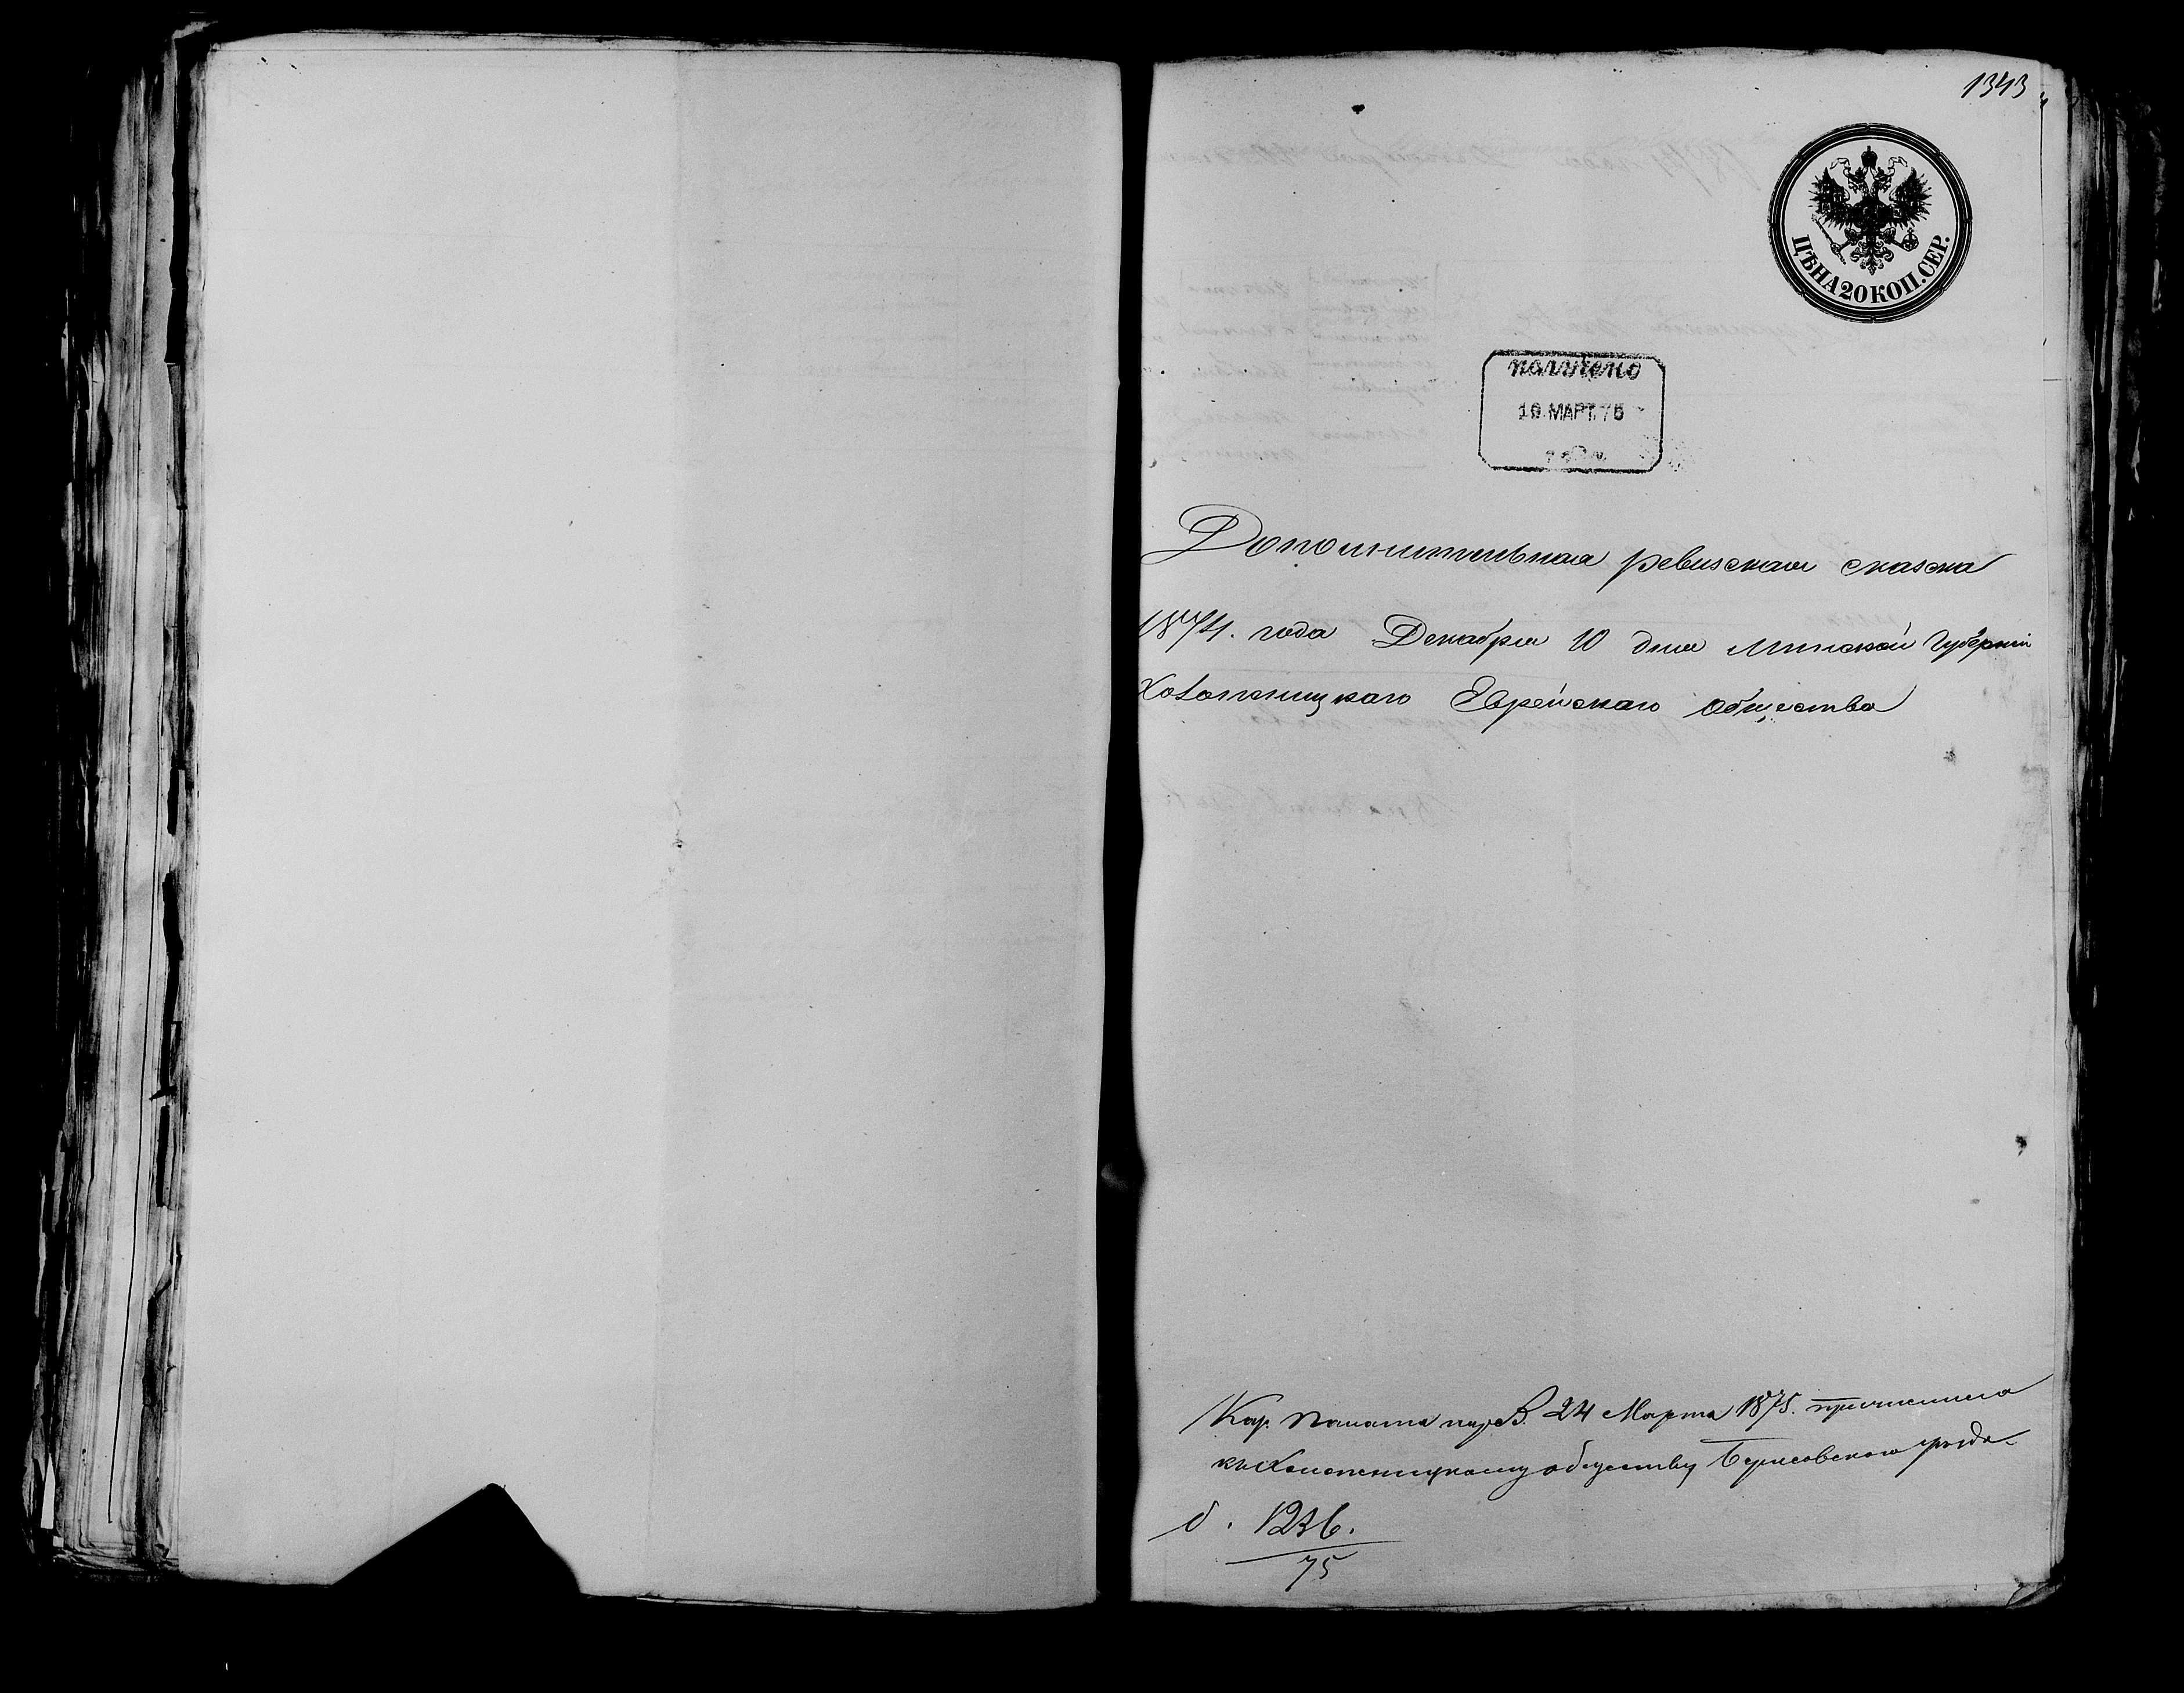 1343
ЦѢНА 20 КОП. СЕР.
получено
19 МАРТ. 75
Дополнительная ревизская сказка
1874. года Декабря 10 дня Минской Губерніи
Холопеницкаго Еврейскаго общества
Каз. Палата 24 Марта 1875. причислила
къ Холопеницкому обществу Борисовского уезда
д. 1236.
75